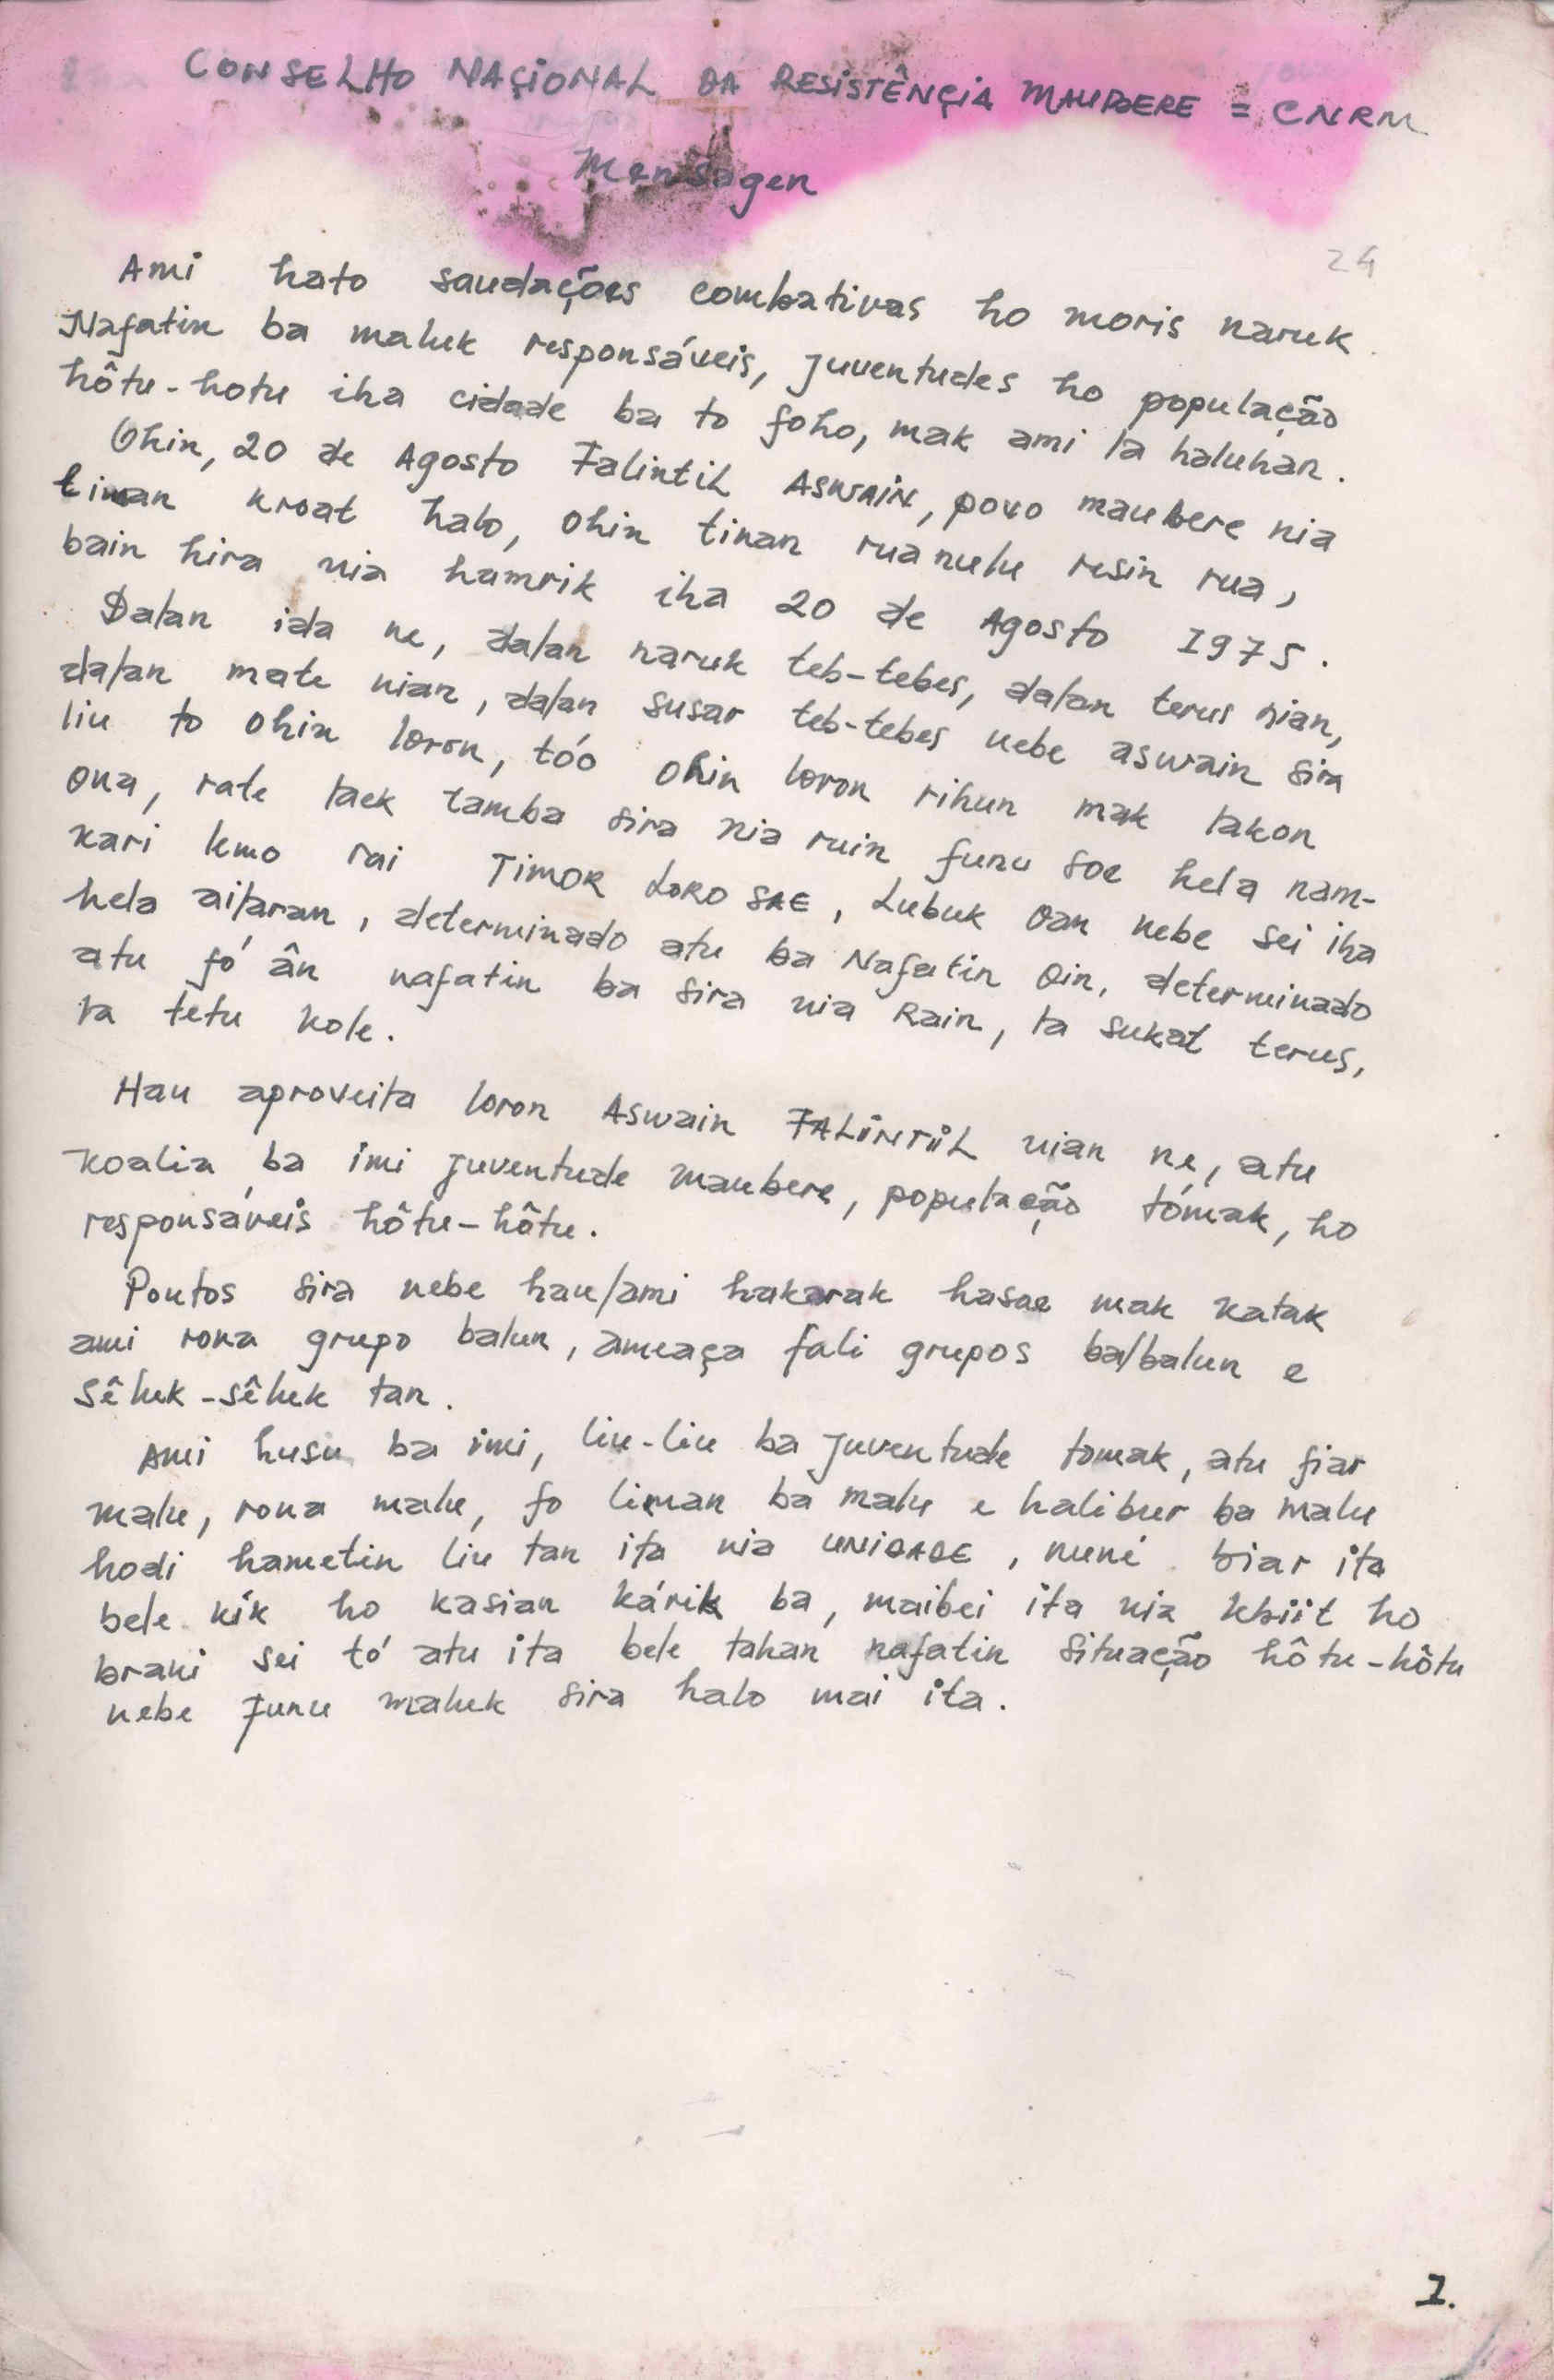 CONSELHO NAÇIONAL DA RESISTÊNÇIA MAUBERE = CNRM
Mensagen
24
Ami hato saudações combativas ho moris naruk
Nafatin ba maluk responsáveis, juventudes ho população
hôtu-hotu iha cidade ba to foho, mak ami la haluhan.
Ohin, 20 de Agosto Falintil ASWAIN, povo maubere nia
liman kroat halo, ohin tinan rua nulu resin rua,
bain hira nia hamrik iha 20 de Agosto 1975.
Dalan ida ne, dalan naruk teb-tebes, dalan terus nian,
dalan mate nian, dalan susar teb-tebes nebe aswain sira
liu to ohin loron, tóo ohin loron rihun mak lakon
ona, rate laek tamba sira nia ruin funu soe hela nam-
kari kmo rai TIMOR LORO SAE, Lubuk oan nebe sei iha
hela ailaran, determinado atu ba Nafatin oin, determinado
atu fó ân nafatin ba sira nia Rain, la sukat terus,
la tetu kole.
Hau aproveita loron Aswain FALINTIL nian ne, atu
koalia ba imi juventude maubere, população tómak, ho
responsáveis hôtu-hôtu.
Pontos sira nebe hau/ami hakarak hasae mak katak
ami rona grupo balun, ameaça fali grupos bal/balun e
Sêluk-sêluk tan.
Ami husu ba imi, liu-liu ba juventude tomak, atu fiar
malu, rona malu, fo liman ba malu e halibur ba malu
hodi hametin liu tan ita nia UNIDADE, nuné biar ita
bele kík ho kasian kárik ba, maibei ita nia kbiit ho
brani sei tó atu ita bele tahan nafatin situação hôtu-hôtu
nebe funu maluk sira halo mai ita.
1.